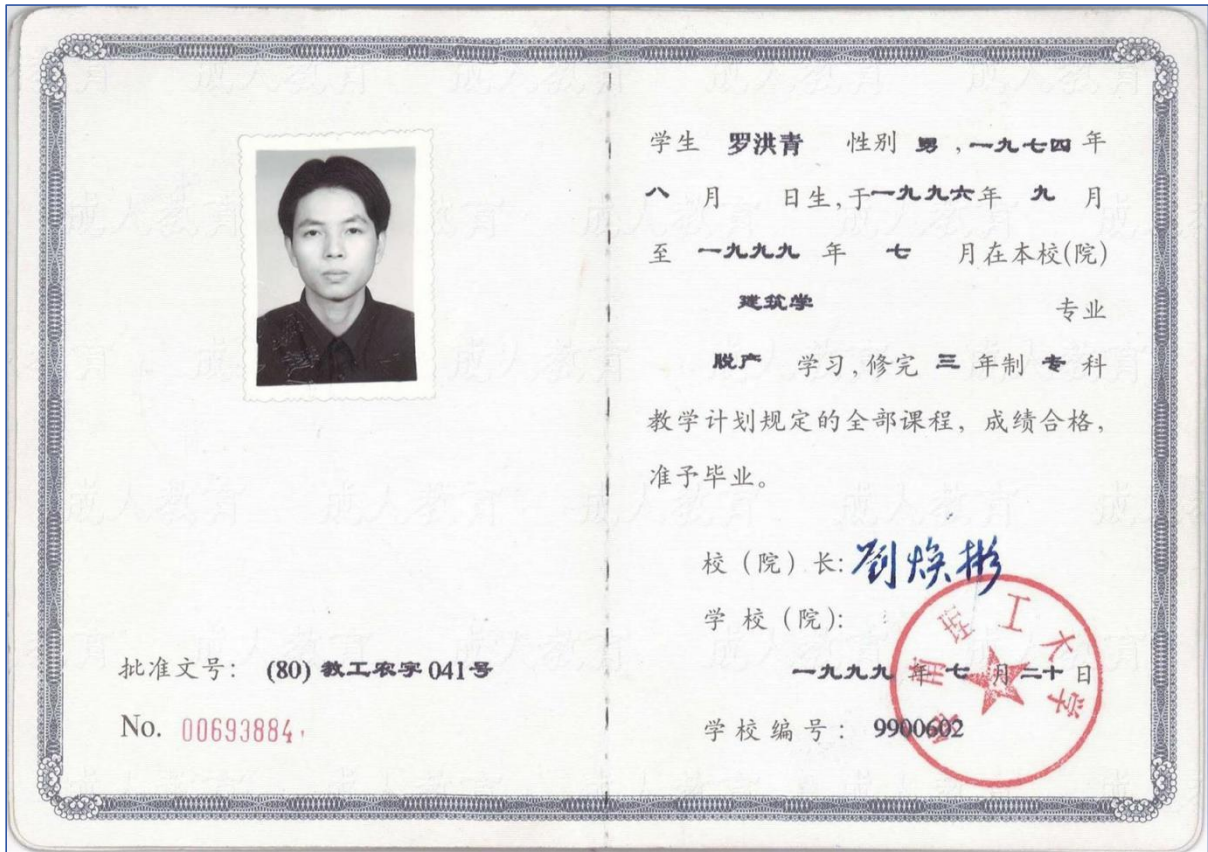 批准文号: (80) 教工农字 041号
No. 00693884
学生 罗洪青 性别 男 , 一九七四 年
八 月 日生,于一九九六年 九 月
至 一九九九 年 七 月在本校(院)
建筑学 专业
脱产 学习,修完 三 年制 专 科
教学计划规定的全部课程, 成绩合格,
准予毕业。
校 (院) 长: 刘焕彬
学 校 (院):
华南理工大学
一九九九 年 七 月 二十 日
学 校 编 号: 9900602
成人教育